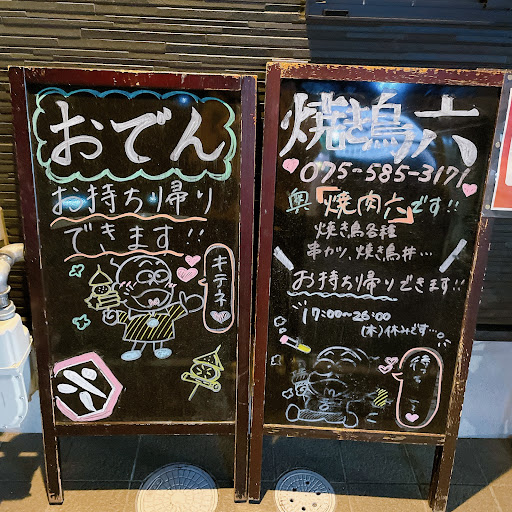 おでん
お持ち帰り
できます!!
キテネ
焼き鳥 六
075-585-3171
奥「焼肉六」です!!
焼き鳥各種
串カツ、焼き鳥丼…
お持ち帰りできます!!
17:00~26:00
(木)休みです…